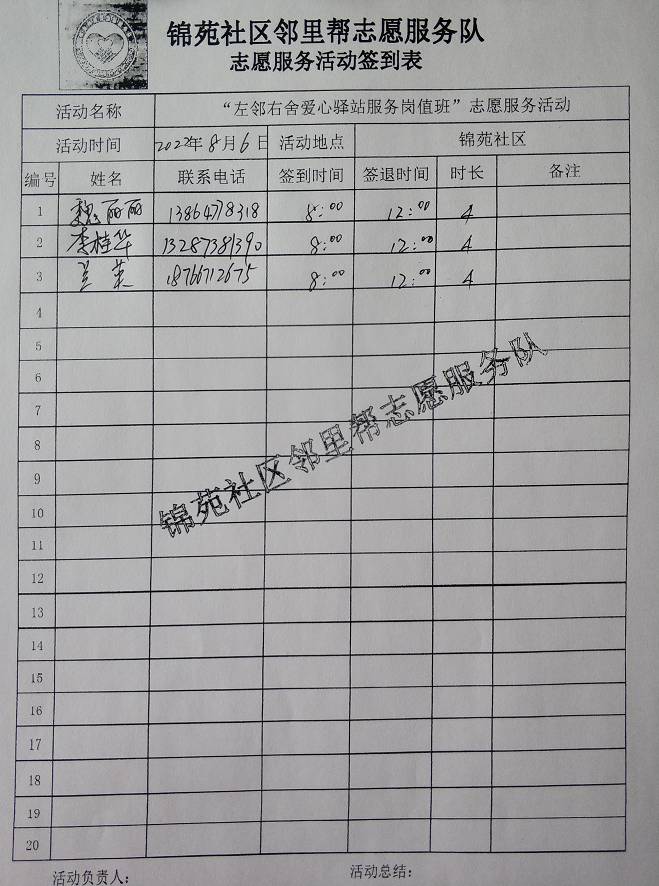 锦苑社区邻里帮志愿服务队
志愿服务活动签到表
活动名称 “左邻右舍爱心驿站服务岗值班”志愿服务活动
活动时间 2022年8月6日 活动地点 锦苑社区
编号 姓名 联系电话 签到时间 签退时间 时长 备注
1 魏丽丽 13864778318 8:00 12:00 4
2 李桂华 13287381390 8:00 12:00 4
3 兰英 18766712675 8:00 12:00 4
4
5
6
7
8
9
10
11
12
13
14
15
16
17
18
19
20
锦苑社区邻里帮志愿服务队
活动负责人: 活动总结: